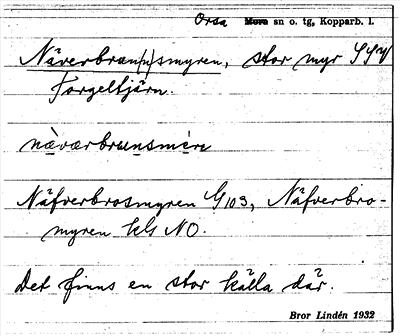 Orsa Mora sn o. tg, Kopparb. l.
Näverbrun(n)smyren, stor myr SSV
Torgeltjärn.
nävərbrunsmɨrɨ
Näfverbrosmyren G103, Näfverbro-
myren kls NO.
Det finns en stor källa där.
Bror Lindén 1932